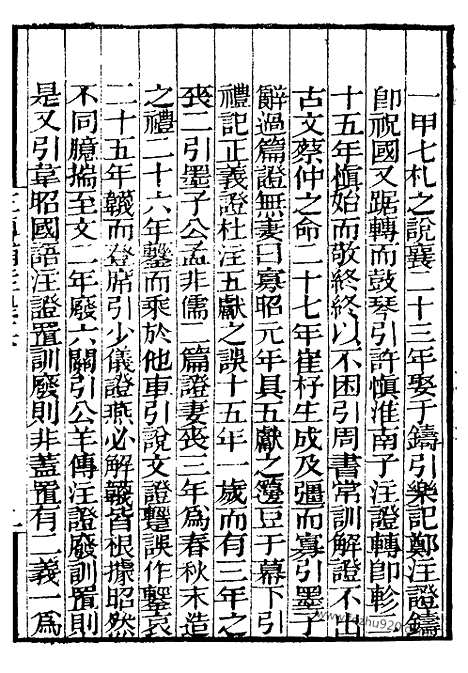 一甲七札之說襄二十三年娶于鑄引樂記鄭注證鑄
卽祝國又踞轉而鼓琴引許愼淮南子注證轉卽軫二
十五年愼始而敬終終以不困引周書常訓解證不出
古文蔡仲之命二十七年崔杼生成及彊而寡引墨子
辭過篇證無妻曰寡昭元年具五獻之籩豆于幕下引
禮記正義證杜注五獻之誤十五年一歲而有三年之
喪二引墨子公孟非儒二篇證妻喪三年為春秋末造
之禮二十六年而乘於他車引說文證誤作哀
二十五年韈而登席引少儀證燕必解韈皆根據昭然
不同臆揣至文二年廢六關引公羊傳注證廢訓置則
是又引韋昭國語注證置訓廢則非蓋置有二義一為